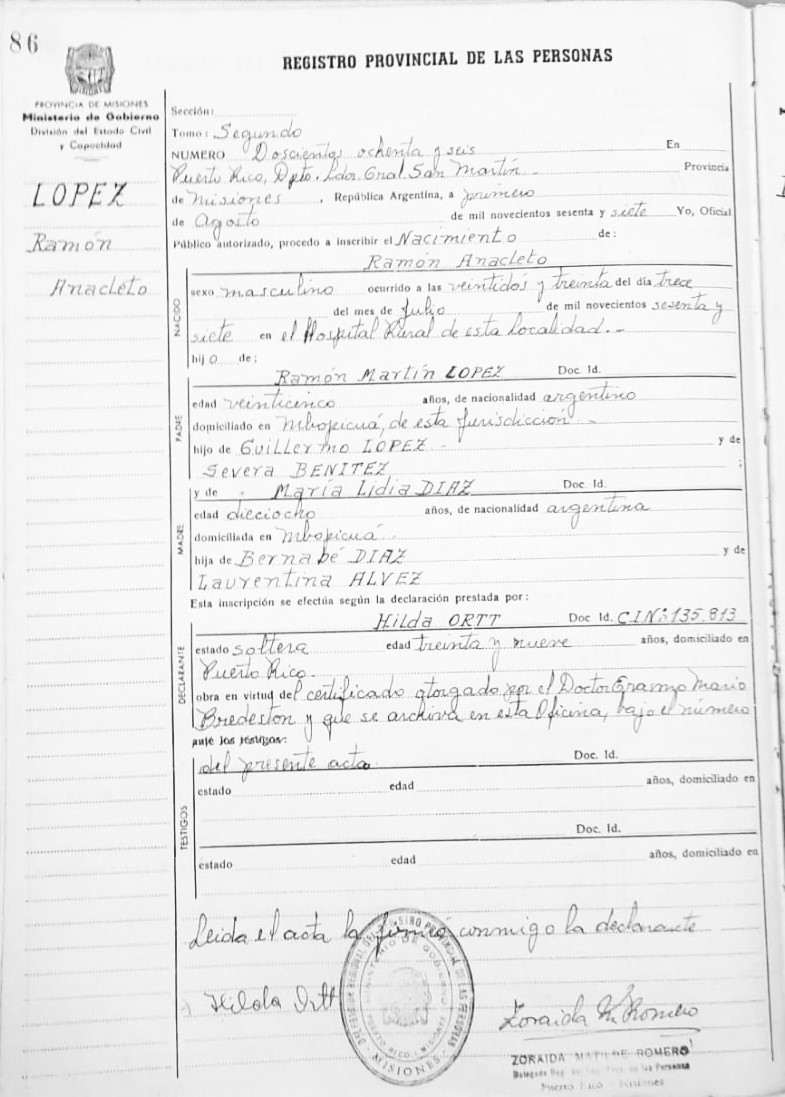 86
REGISTRO PROVINCIAL DE LAS PERSONAS
PROVINCIA DE MISIONES
Ministerio de Gobierno
División del Estado Civil
y Capacidad
LOPEZ
Ramón
Anacleto
Sección:
Tomo: Segundo
NUMERO Doscientos ochenta y seis En
Puerto Rico, Dpto. Ldor. Gral San Martín. Provincia
de Misiones, República Argentina, a primero
de Agosto de mil novecientos sesenta y siete Yo, Oficial
Público autorizado, procedo a inscribir el Nacimiento de:
Ramón Anacleto
NACIDO
sexo masculino ocurrido a las veintidós y treinta del día trece
del mes de Julio de mil novecientos sesenta y
siete en el Hospital Rural de esta localidad.-
hijo de:
Ramón Martín LOPEZ Doc. Id.
PADRE
edad veinticinco años, de nacionalidad argentino
domiciliado en Mbopicuá, de esta Jurisdicción.-
hijo de Guillermo LOPEZ - y de
Severa BENITEZ ;
y de María Lidia DIAZ Doc. Id.
MADRE
edad dieciocho años, de nacionalidad argentina
domiciliada en Mbopicuá.
hija de Bernabé DIAZ y de
Laurentina ALVEZ
Esta inscripción se efectúa según la declaración prestada por:
Hilda ORTT Doc. Id. C.I.Nº 135.813
DECLARANTE
estado soltera edad treinta y nueve años, domiciliado en
Puerto Rico.
obra en virtud del certificado otorgado por el Doctor Mario
Bredeston y que se archiva en esta Oficina, bajo el número
ante los testigos:
del presente acta. Doc. Id.
TESTIGOS
estado edad años, domiciliado en
Doc. Id.
estado edad años, domiciliado en
Leida el acta la firmó conmigo la declarante
Hilda Ortt
Zoraida M. Romero
ZORAIDA MATILDE ROMERO
Puerto Rico - Misiones